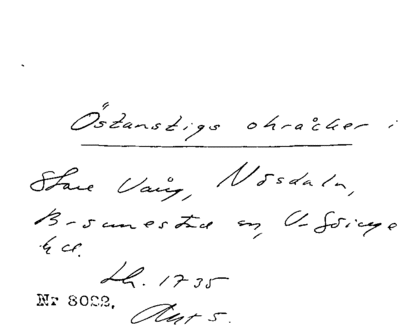 Östanstigs ohråcker i
Stora Vång, Nösdala,
B-sunnestad sn, V-Göinge
hd.
Lh. 1735
Nr 8022. Avt 5.